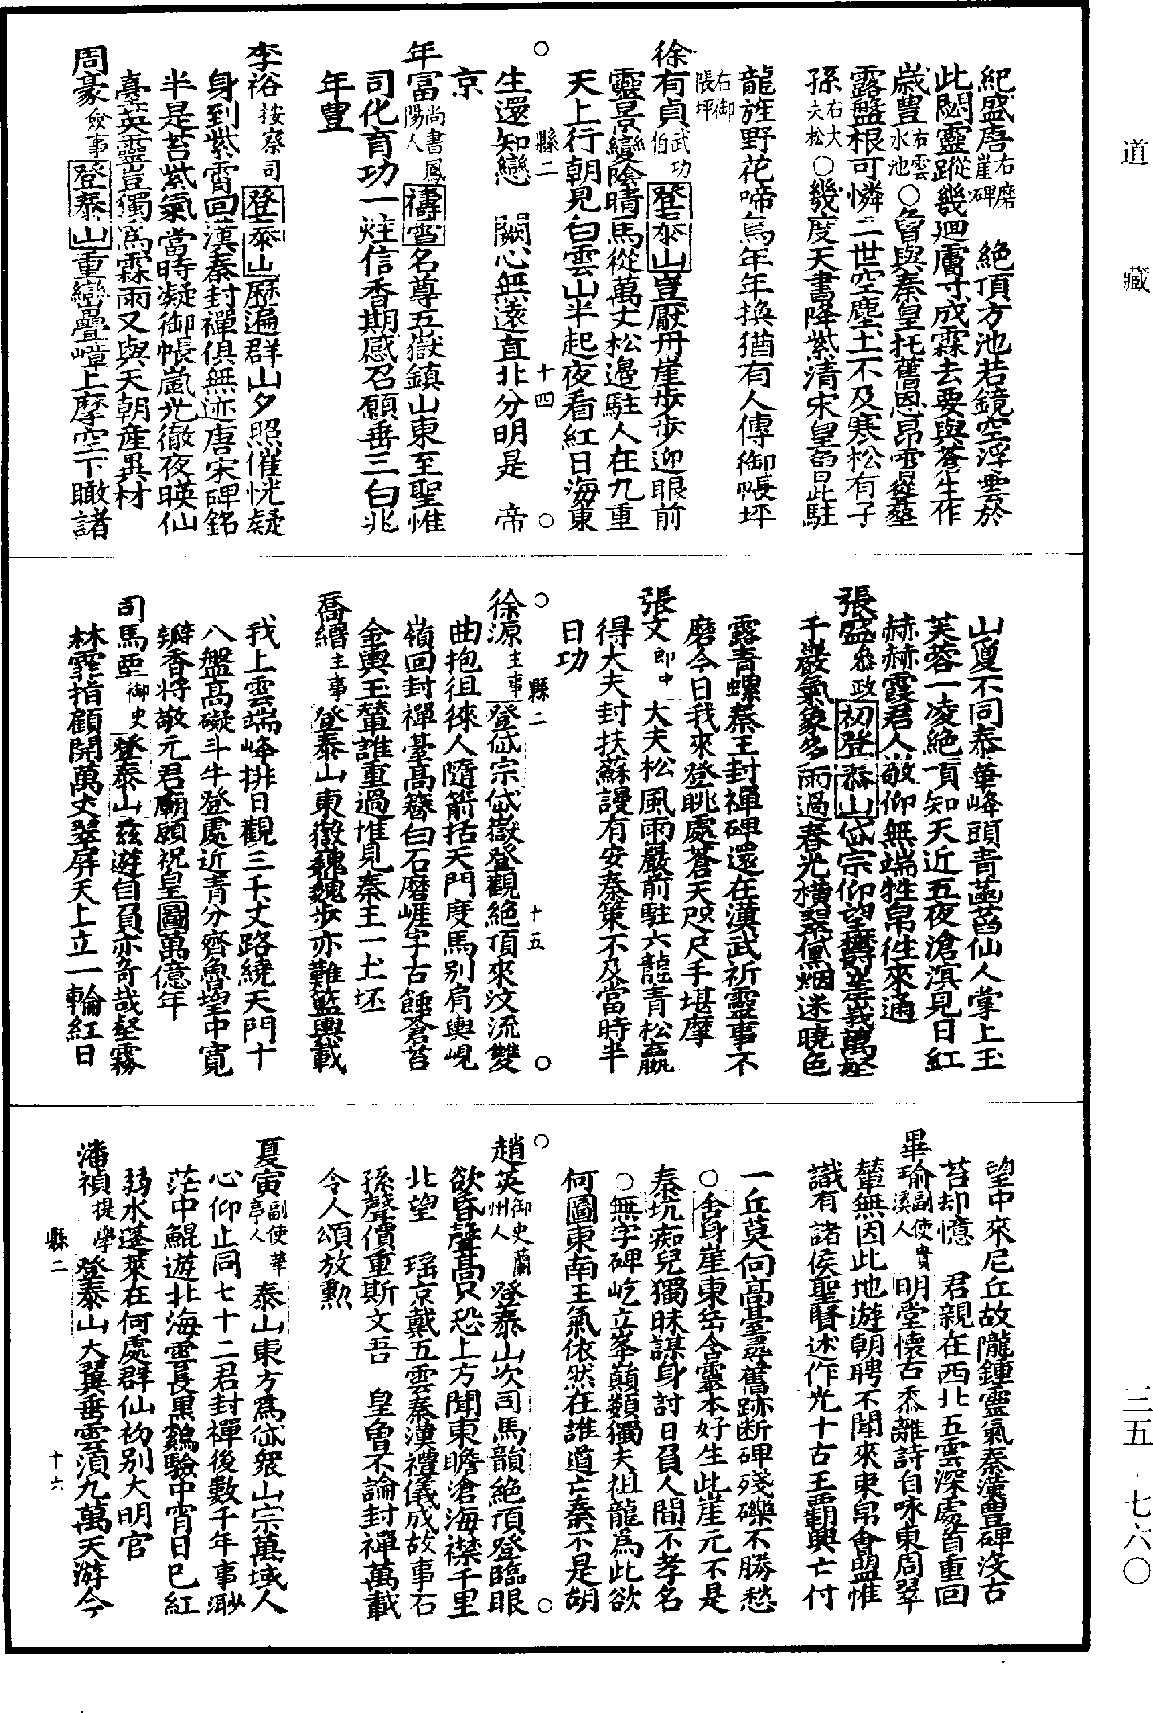 道藏
三五・七六〇
紀盛唐右磨崖碑　絶頂方池若鏡空浮雲於
此閟靈蹤幾迴膚寸成霖去要與蒼生作
歲豐右雲水池○曾與秦皇托舊恩昂霄聳壑
露盤根可憐二世空塵土不及寒松有子
孫右大夫松○幾度天書降紫清宋皇曾此駐
龍旌野花啼鳥年年換猶有人傳御帳坪
右御帳坪
徐有貞武功伯登泰山豈厭丹崖步步迎眼前
靈景變陰晴馬從萬丈松邊駐人在九重
天上行朝見白雲山半起夜看紅日海東
縣二　十四
生還知戀　闕心無遠直北分明是　帝
京
年富尚書鳳陽人禱雪名尊五嶽鎮山東至聖惟
司化育功一炷信香期感召願垂三白兆
年豐
李裕按察司登泰山歷遍群山夕照催恍疑
身到紫霄回漢秦封禪俱無迹唐宋碑銘
半是苔紫氣當時凝御帳嵐光徹夜暎仙
臺英靈豈獨為霖雨又與天朝産異材
周豪僉事登泰山重巒疊嶂上摩空下瞰諸
山夐不同泰華峰頭青菡萏仙人掌上玉
芙蓉一凌絶頂知天近五夜滄溟見日紅
赫赫震君人敬仰無端牲帛往來通
張盛叅政初登泰山岱宗仰望鬱嵳峩萬壑
千巖氣象多雨過春光橫翠黛烟迷曉色
露青螺秦王封禪碑還在漢武祈靈事不
磨今日我來登眺處蒼天咫尺手堪摩
張文郎中大夫松風雨嚴前駐六龍青松嬴
得大夫封扶蘇謾有安秦策不及當時半
日功
縣二　十五
徐源主事登岱宗岱嶽登觀絶頂來汶流雙
曲抱徂徠人隨箭括天門度馬別肩輿峴
嶺回封禪臺高簪白石磨崖字古蝕蒼苔
金輿玉輦誰重過惟見秦王一土坯
喬縉主事登泰山東嶽巍巍步亦難籃輿載
我上雲端峰排日觀三千丈路繞天門十
八盤高礙斗牛登處近青分齊魯望中寬
瓣香將敬元君廟願祝皇圖萬億年
司馬垔御史登泰山茲遊自負亦奇哉壑霧
林霏指顧開萬丈翠屏天上立一輪紅日
望中來尼丘故隴鍾靈氣秦漢豐碑沒古
苔却憶　君親在西北五雲深處首重回
畢瑜副使貴溪人明堂懷古黍離詩自咏東周翠
輦無因此地遊朝聘不聞來東帛會盟惟
識有諸侯聖賢述作光十古王覇興亡付
一丘莫向高臺尋舊跡断碑殘礫不勝愁
○舍身崖東岳含靈本好生此崖元不是
秦坑痴兒獨昧謀身討日負人間不孝名
○無字碑屹立峯巔類獨夫祖龍為此欲
何圖東南王氣依然在誰道亡秦不是胡
趙英御史蘭州人登泰山次司馬韻絶頂登臨眼
欲昏聲高只恐上方聞東瞻滄海襟千里
北望　瑶京戴五雲秦漢禮儀成故事石
孫聲價重斯文吾　皇曾不論封禪萬載
令人頌放勲
夏寅副使華亭人泰山東方為岱衆山宗萬域人
心仰止同七十二君封禪後數千年事渺
茫中鯤遊北海雲長黒鷄驗中宵日已紅
弱水蓬萊在何處群仙初別大明宫
潘禎提學登泰山大翼垂雲湏九萬天游今
縣二　十六